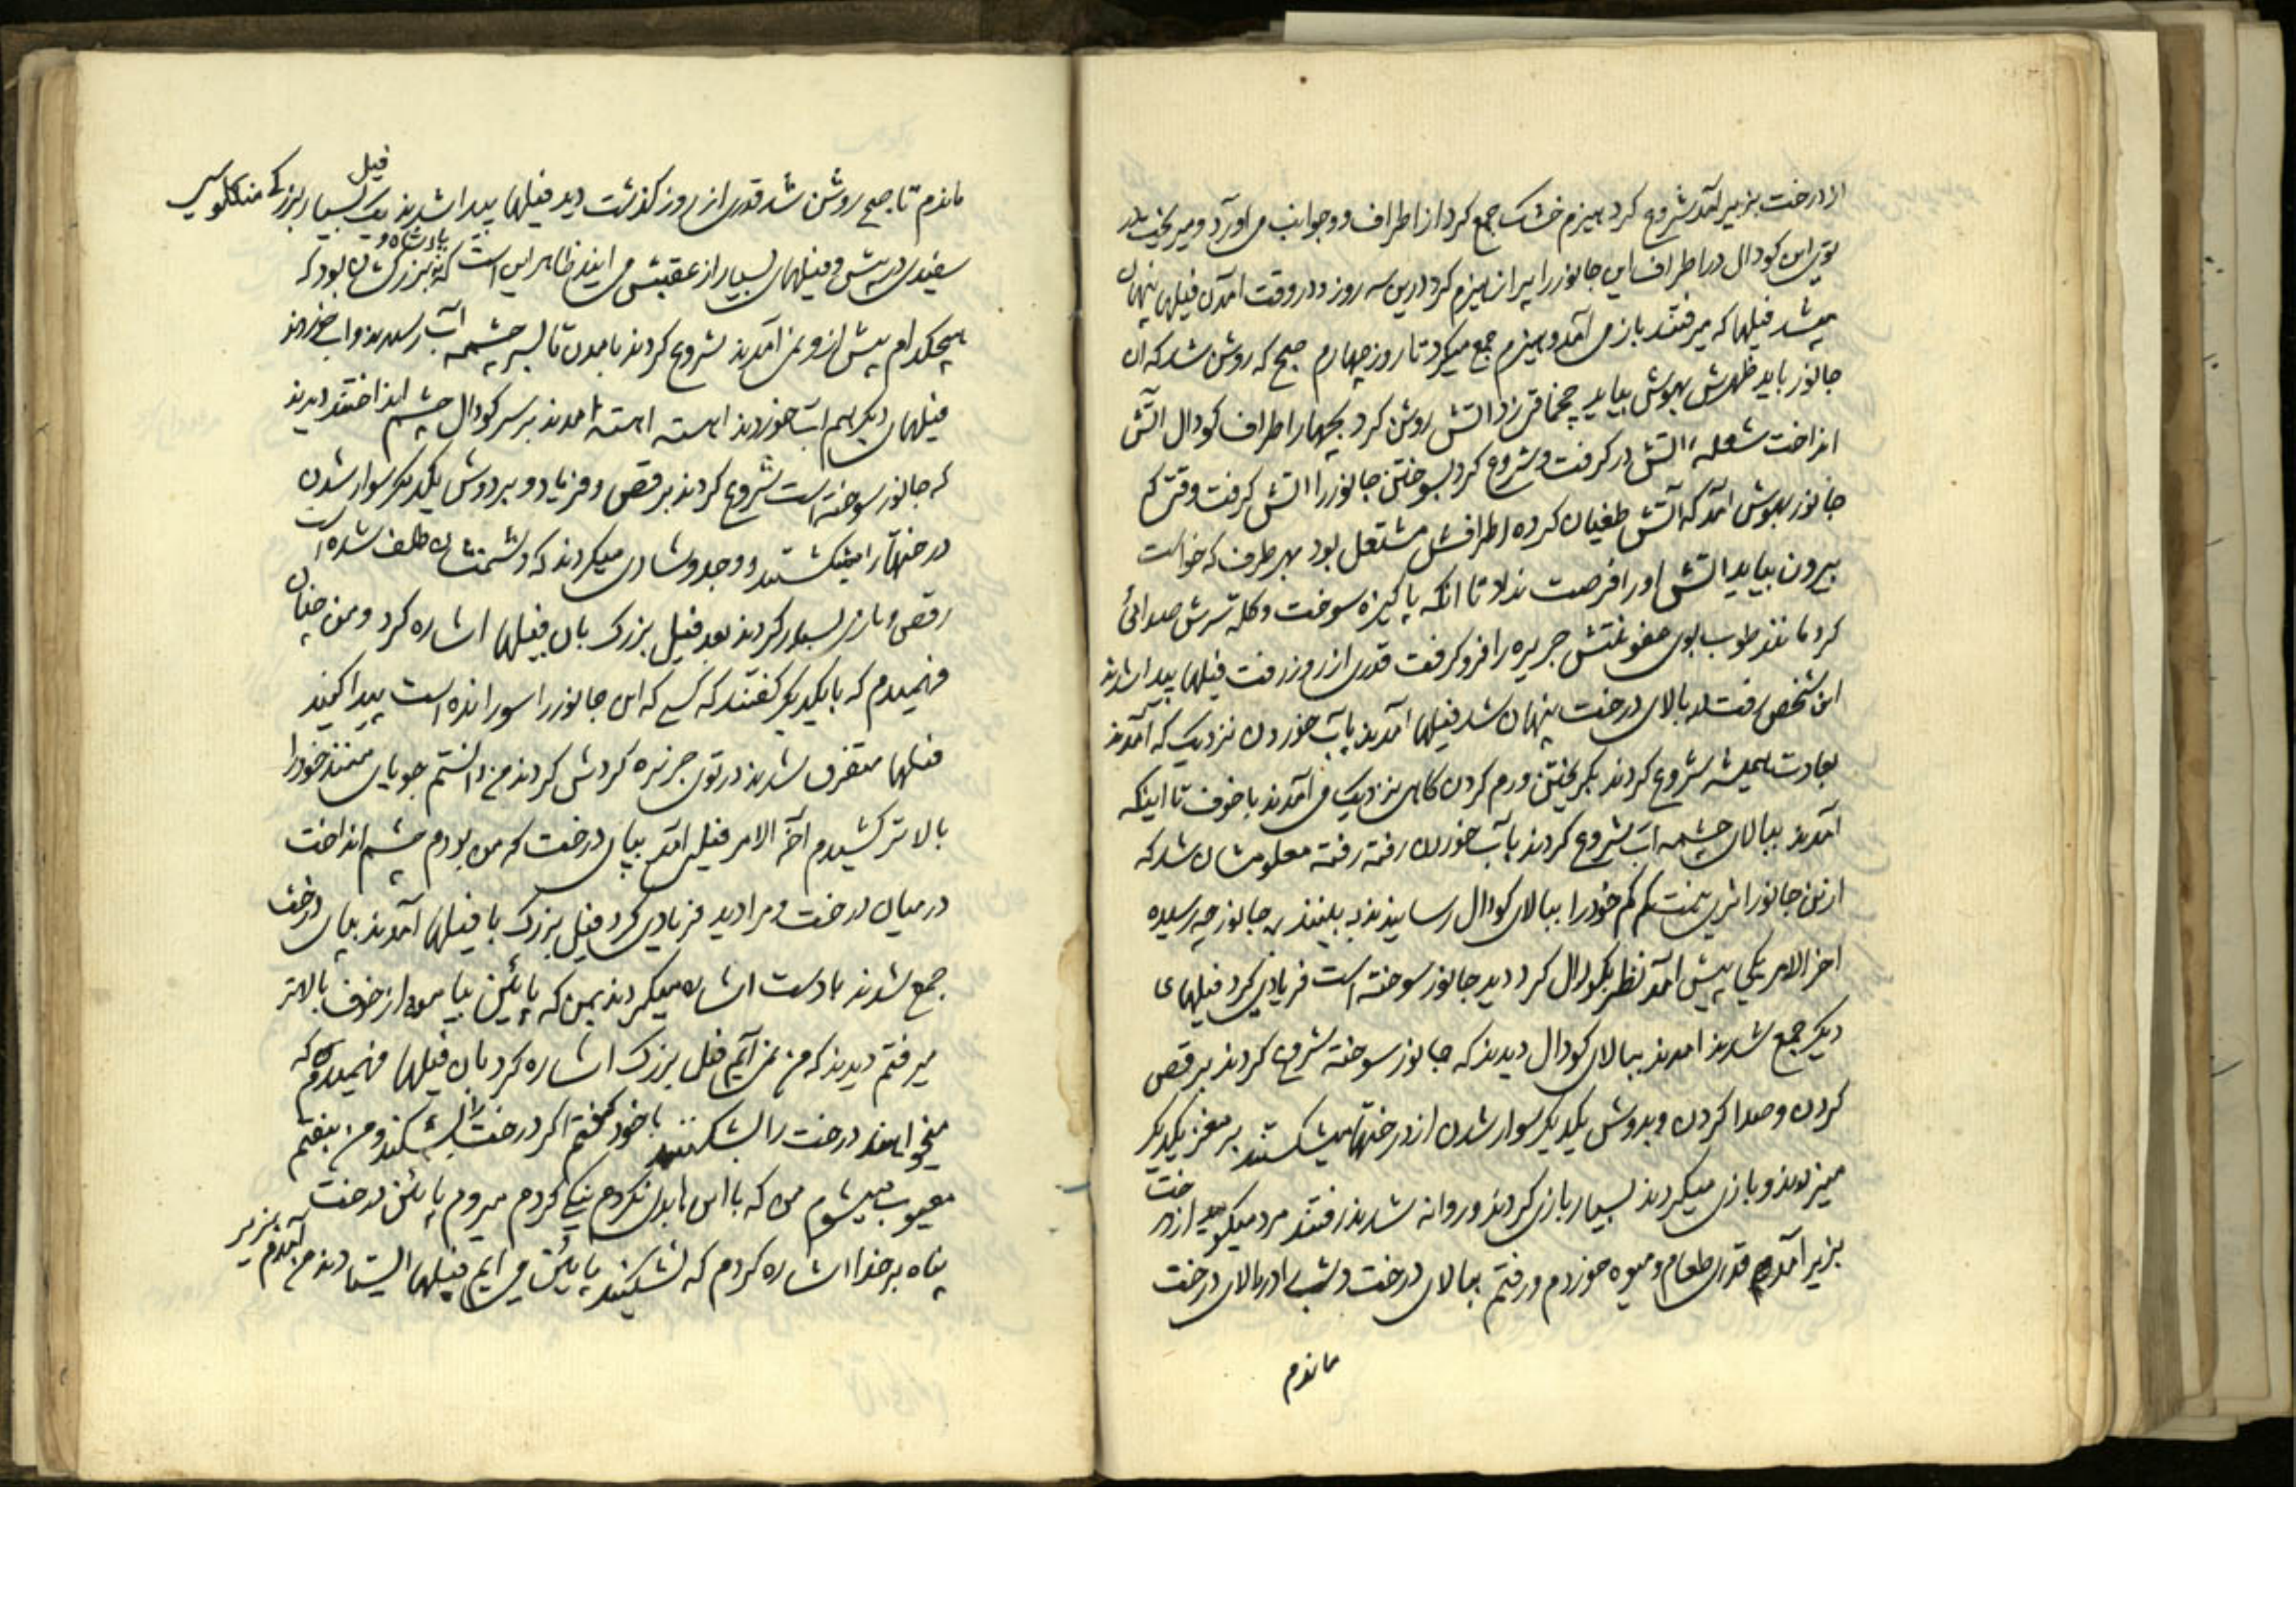 از درخت بزیر آمد شروع کرد هیزم خشک جمع کرد از اطراف و جوانب می اورد و میریخت
توی این کودال در اطراف این جانور را پر از هیزم کرد درین سه روز و در وقت آمدن فیلها پنهان
میشد فیلها که میرفتند باز می آمد و هیزم جمع میکرد تا روز چهارم صبح که روشن شد که ان
جانور باید ظهرش بهوش بیاید چخماقی زد اتش روشن کرد بچهار اطراف کودال اتش
انداخت شعله اتش در کرفت و شروع کرد بسوختن جانور را اتش کرفت وقتی که
جانور بهوش آمد که آتش طغیان کرده اطرافش مشتعل بود بهر طرف که خواست
بیرون بیاید اتش اورا فرصت نداد تا انکه پاکیزه سوخت و کله سرش صدائی
کرد مانند طوب بوی عفونتش جزیره را فرو کرفت قدری از روز رفت فیلها پیدا شدند
این شخص رفت بالای درخت پنهان شد فیلها آمدند بآب خوردن نزدیک که آمدند
بعادت همیشه شروع کردند بکریختن و رم کردن کاهی نزدیک می آمدند با خوف تا اینکه
آمدند ببالای چشمه اب شروع کردند بآب خوردن رفته رفته معلومشان شد که
ازین جانور اثری نیست کم کم خودرا ببالای کودال رسانیدند به بینند جانور چه رسیده
اخر الامر یکی پیش آمد نظر بکودال کرد دید جانور سوخته است فریادی کرد فیلهای
دیکر جمع شدند امدند ببالای کودال دیدند که جانور سوخته شروع کردند برقص
کردن و صدا کردن و بدوش یکدیکر سوار شدن از درختها میشکستند بر مغز یکدیکر
میزدند و بازی میکردند بسیار بازی کردند و روانه شدند رفتند مرد میکوید از درخت
بزیر آمدم قدری طعام و میوه خوردم و رفتم ببالای درخت و شب را در بالای درخت
ماندم
ماندم تا صبح روشن شد قدری از روز کذشت دید فیلها پیدا شدند یک فیل بسیار بزرک
سفیدی در پیش و فیلهای بسیار از عقبش می ایند ظاهر این است که پادشاه و بزرکشان بود که
هیچکدام پیش از و نمی آمدند شروع کردند بامدن تا بسر چشمه آب رسیدند و اب خوردند
فیلهای دیکر هم آب خوردند اهسته اهسته امدند بر سر کودال چشم انداختند دیدند
که جانور سوخته است شروع کردند برقص و فریاد و بر دوش یکدیکر سوار شدن
درختها را میشکستند و وجد و شادی میکردند که دشمنشان طلف شده است
رقص و بازی بسیار کردند بعد فیل بزرک بان فیلها اشاره کرد و من چنان
فهمیدم که بایکدیکر کفتند که کسی که این جانور را سورانده است پیدا کنید
فیلها متفرق شدند در توی جزیره کردش کردند من دانستم جویای منند خودرا
بالا تر کشیدم آخر الامر فیلی آمد بپای درخت که من بودم چشم انداخت
در میان درخت و مرا دید فریادی کرد فیل بزرک با فیلها آمدند بپای درخت
جمع شدند با دست اشاره میکردند بمن که پائین بیا من از خوف بالاتر
میرفتم دیدند که من نمی آیم فیل بزرک اشاره کرد بان فیلها فهمیدم که
میخواهند درخت را بشکنند با خود کفتم اکر درخت را بشکنند و من بیفتم
معیوب میشوم من که با این ها بدی نکردم نیکی کردم میروم پائین درخت
پناه بر خدا اشاره کردم که نشکنید پائین می ایم فیلها ایستادند من آمدم بزیر